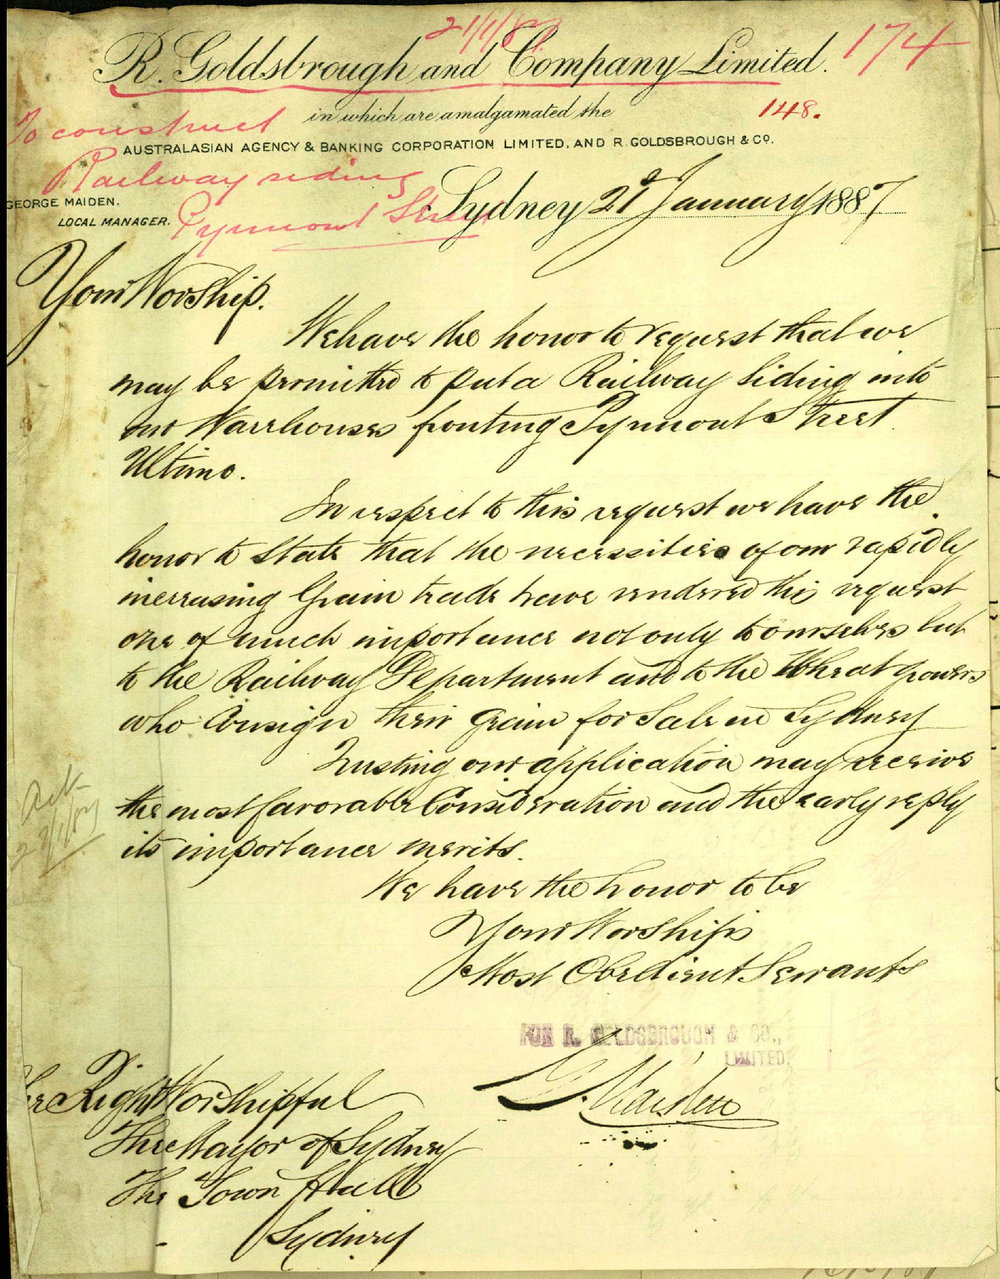 21/1/87
R. Goldsbrough and Company Limited.
174
in which are amalgamated the
148.
AUSTRALASIAN AGENCY & BANKING CORPORATION LIMITED, AND R. GOLDSBROUGH & CO.
To construct
Railway siding
Pyrmont Street
GEORGE MAIDEN.
LOCAL MANAGER.
Sydney 21st January 1887
Your Worship.
We have the honor to request that we
may be permitted to put a Railway Siding into
our Warehouses fronting Pyrmont Street
Ultimo.
In respect to this request we have the
honor to state that the necessities of our rapidly
increasing Grain trade have rendered this request
one of much importance not only to ourselves but
to the Railway Department and to the Wheat growers
who Consign their Grain for Sale in Sydney
Trusting our application may receive
the most favorable Consideration and the early reply
its importance merits.
We have the honor to be
Your Worship's
Most Obedient Servants
FOR R. GOLDSBROUGH & CO.,
LIMITED.
G. Maiden
The Right Worshipful
The Mayor of Sydney
The Town Hall
Sydney